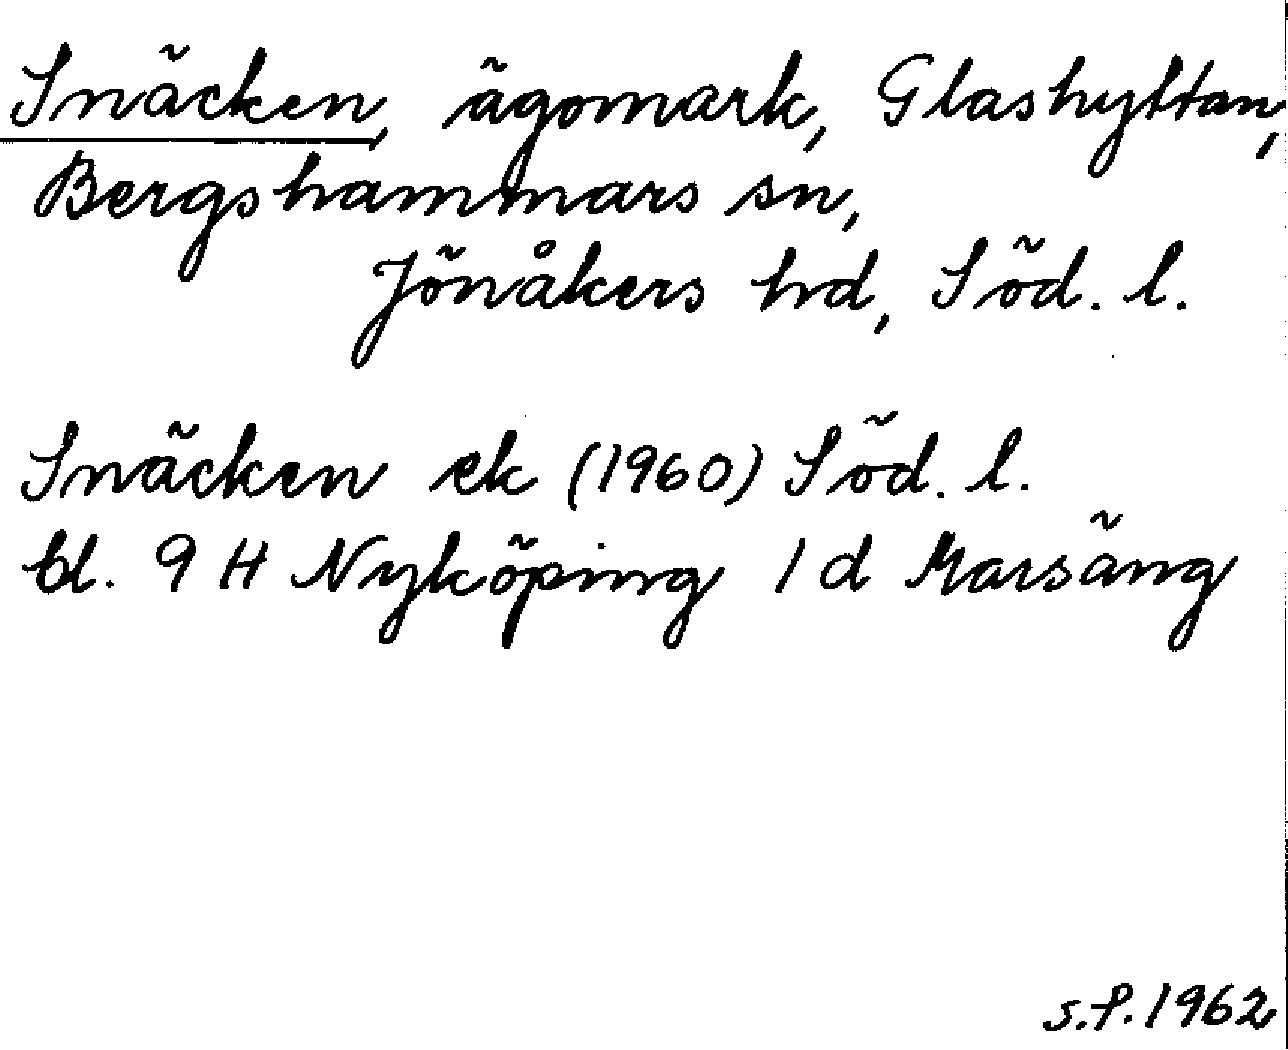 Snäcken, ägomark, Glashyttan,
Bergshammars sn,
Jönåkers hd, Söd. l.
Snäcken ek (1960) Söd. l.
bl. 9 H Nyköping 1 d Marsäng
S.P. 1962